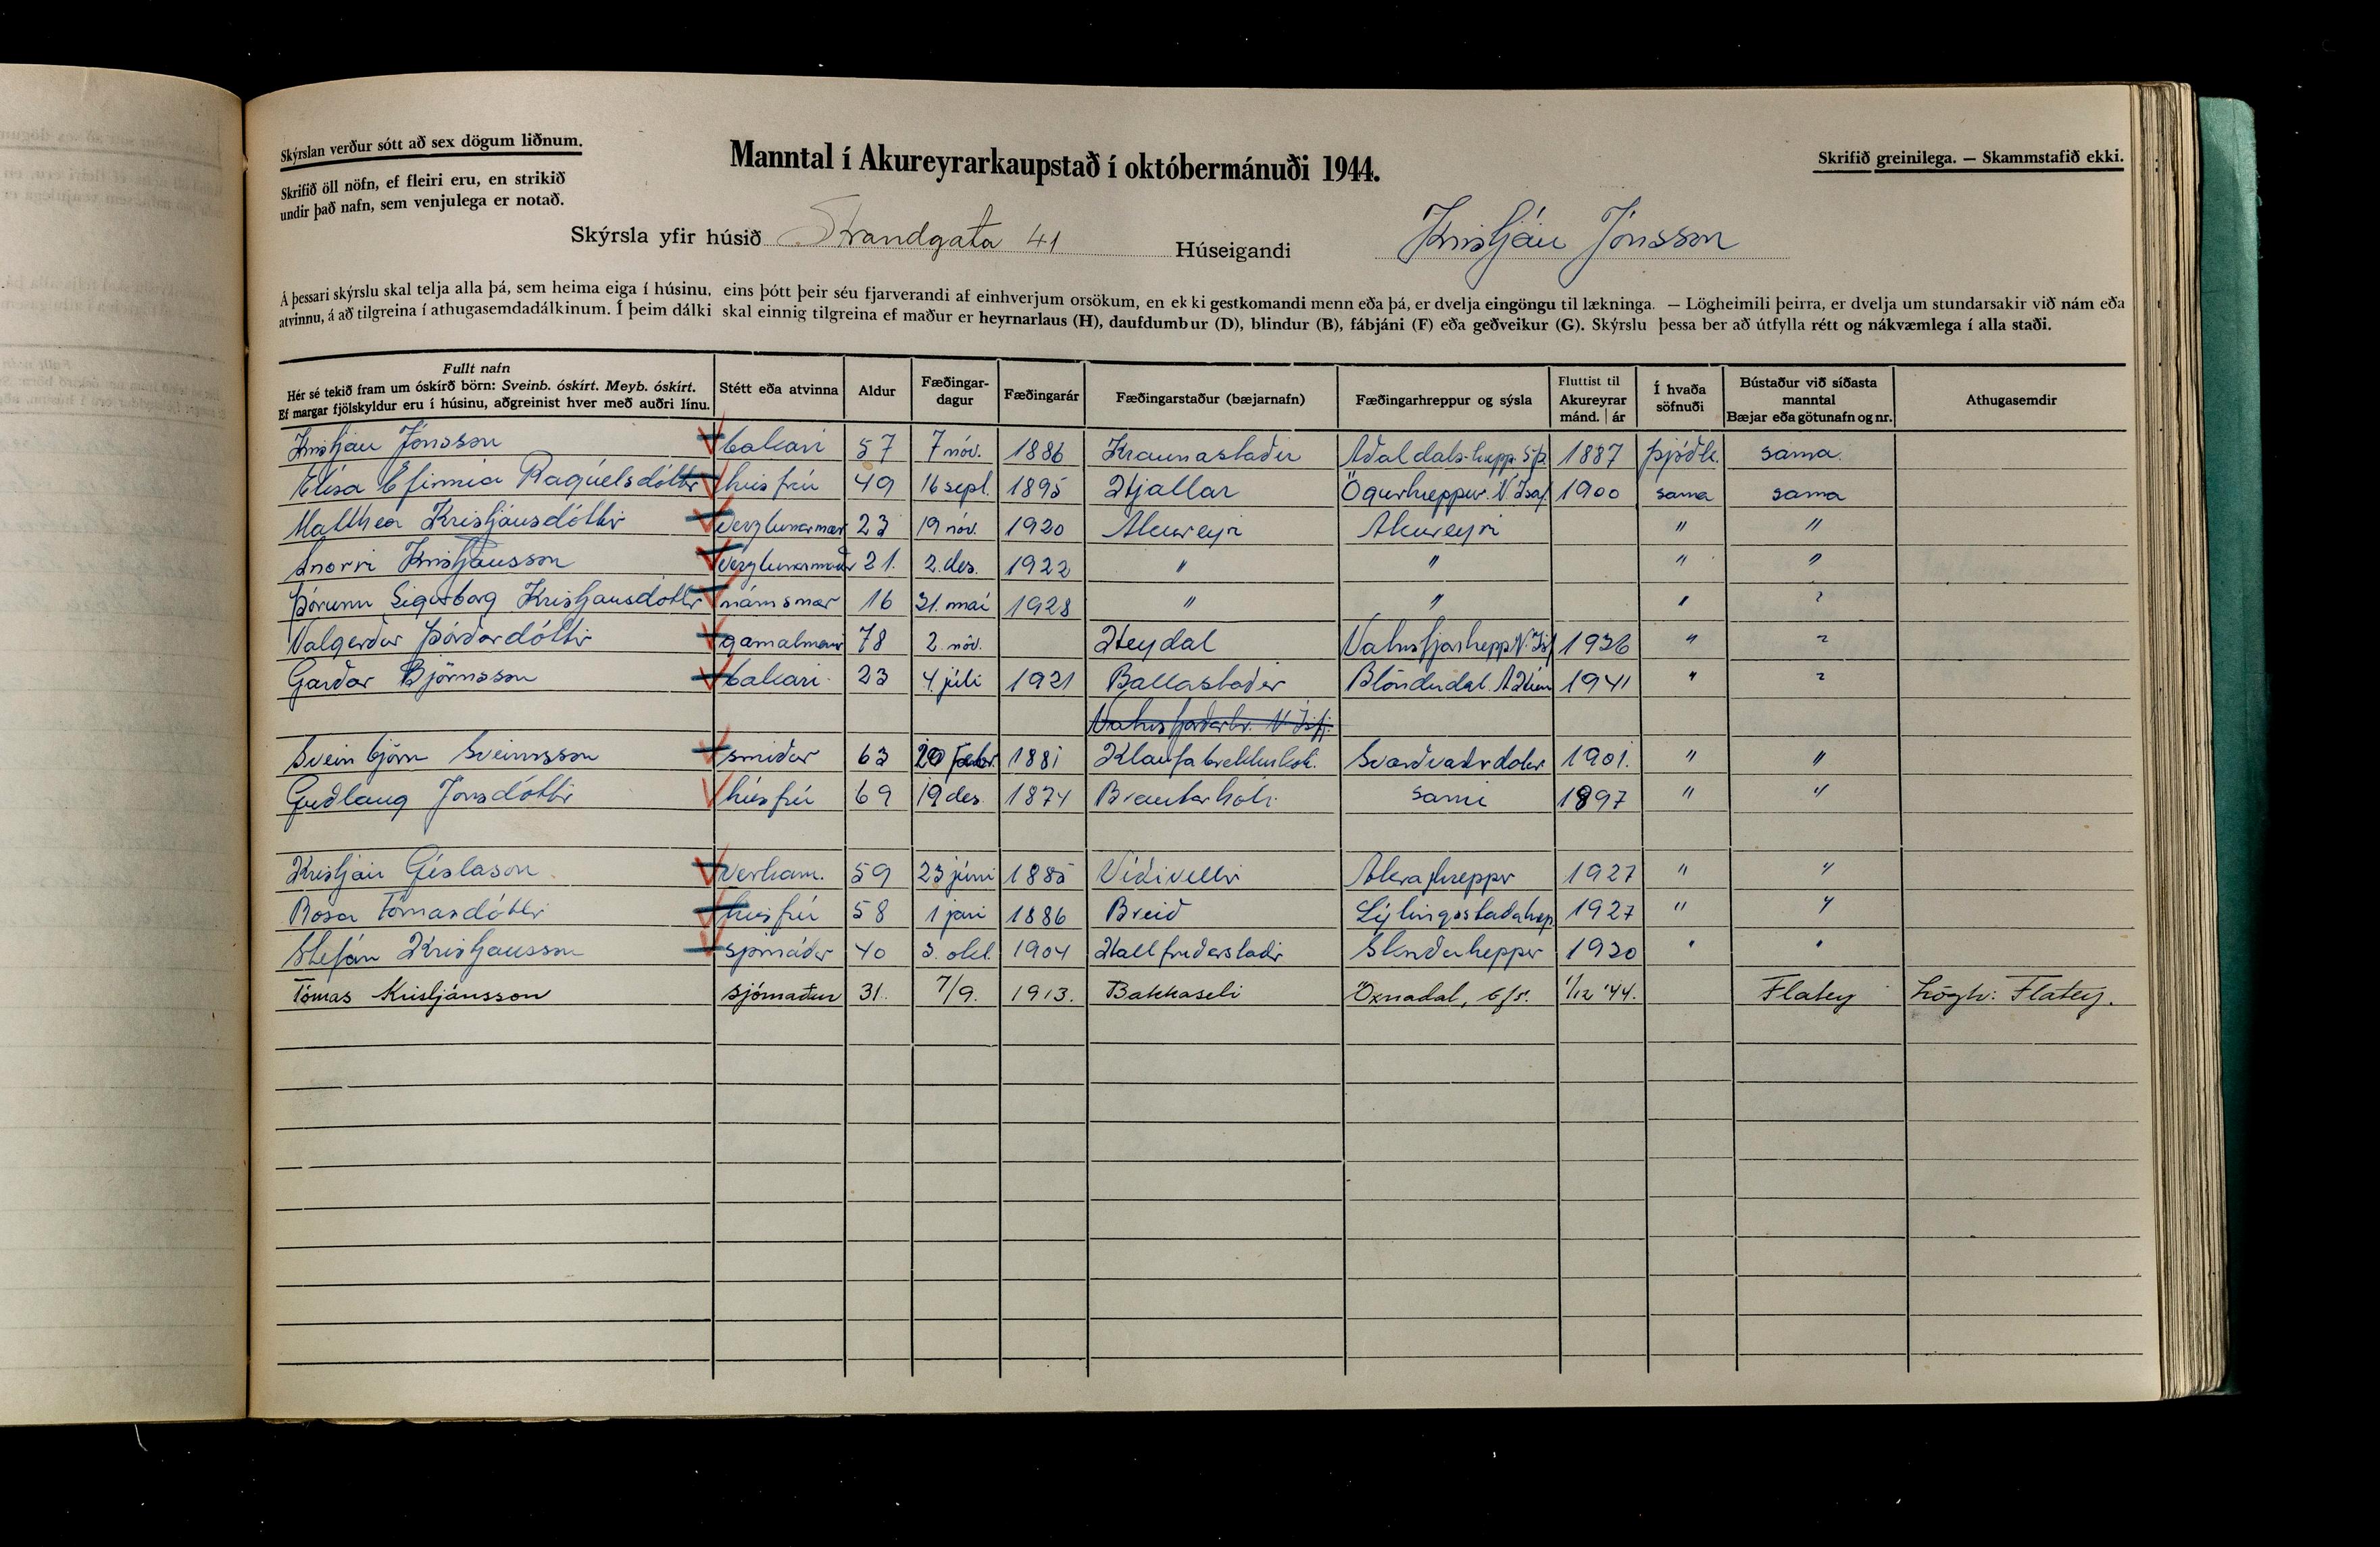 Skýrslan verður sótt að sex dögum liðnum.
Skrifið öll nöfn, ef fleiri eru, en strikið
undir það nafn, sem venjulega er notað.
Manntal í Akureyrarkaupstað í októbermánuði 1944.
Skrifið greinilega. — Skammstafið ekki.
Skýrsla yfir húsið Strandgata 41 Húseigandi Kristján Jónsson
Á þessari skýrslu skal telja alla þá, sem heima eiga í húsinu, eins þótt þeir séu fjarverandi af einhverjum orsökum, en ekki gestkomandi menn eða þá, er dvelja eingöngu til lækninga. — Lögheimili þeirra, er dvelja um stundarsakir við nám eða
atvinnu, á að tilgreina í athugasemdadálkinum. Í þeim dálki skal einnig tilgreina ef maður er heyrnarlaus (H), daufdumbur (D), blindur (B), fábjáni (F) eða geðveikur (G). Skýrslu þessa ber að útfylla rétt og nákvæmlega í alla staði.
Fullt nafn
Hér sé tekið fram um óskírð börn: Sveinb. óskírt. Meyb. óskírt.
Ef margar fjölskyldur eru í húsinu, aðgreinist hver með auðri línu.
Stétt eða atvinna
Aldur
Fæðingar-
dagur
Fæðingarár
Fæðingarstaður (bæjarnafn)
Fæðingarhreppur og sýsla
Fluttist til
Akureyrar
mánd. | ár
Í hvaða
söfnuði
Bústaður við síðasta
manntal
Bæjar eða götunafn og nr.
Athugasemdir
Kristján Jónsson bakari 57 7 nóv. 1886 Kraunastaðir Aðaldals-hrepp. S.Þ. 1887 þjóðk. sama.
Elísa Efimia Raqúelsdóttir húsfrú 49 16 sept. 1895 Hjallar Ögurhreppur. N Ísaf. 1900 sama sama
Matthea Kristjánsdóttir verzlunarmær 23 19 nóv. 1920 Akureyri Akureyri " "
Snorri Kristjánsson Verzlunarmaður 21. 2. des. 1922 " " " "
Þórunn Sigurborg Kristjansdóttir námsmær 16 31. maí 1928 " " " "
Valgerður Þórðardóttir gamalmenni 78 2. nóv. Heydal Vatnsfjarhrepp N. Ísf 1936 " "
Garðar Björnsson bakari 23 4. júlí 1921 Ballastaðir Blöndudal. A Hún 1941 " "
Vatnsfjarðarhr. N-Ísfj.
Sveinbjörn Sveinsson smiður 63 20 febr. 1881 Klaufabrekknakot. Svarðvaðrdalur 1901. " "
Guðlaug Jónsdóttir húsfrú 69 19 des. 1874 Brautarhóli sami 1897 " "
Kristján Gíslason verkam. 59 23 júní 1885 Víðivellir Akrahreppur 1927 " "
Rosa Tómasdóttir húsfrú 58 1 janí 1886 Breið Lýtingsstaðahrep 1927 " "
Stefán Kristjansson sjómaðr 40 3. okt. 1904 Hallfriðarstaðir Skriðuhreppur 1930 " "
Tómas Kristjánsson sjómaður 31. 7/9. 1913. Bakkaseli Öxnadal, Efs. 1/12 '44. Flatey Lögh: Flatey.